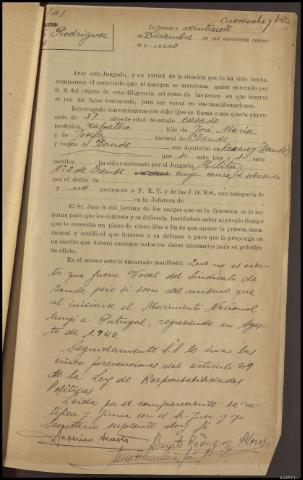 cuarenta y dos
Rodriguez
En Orense a veintisiete
de Diciembre de mil novecientos cuaren-
ta y uno
Ante este Juzgado, y en virtud de la citación que se ha hecho
comparece el encartado que al margen se menciona, quien enterado por
S. S. del objeto de esta diligencia, así como de las penas en que incurre
el reo de falso testimonio, para ser veraz en sus manifestaciones.
Interrogado convenientemente dijo: Que se llama como queda expre-
sado, de 37 años de edad, estado casado
profesión Zapatero hijo de José María
y de Josefa natural de Bande
y vecino de Bande con domicilio en (Bande)
que si sabe leer y si sabe
escribir, ha sido condenado por el Juzgado Militar
nº 3 de Orense cuya causa fué sobreseída
por el delito de
y no pertenece a F. E. T. y de las J. O. N. S., con categoría de
en la Jefatura de
El Sr. Juez le dió lectura de los cargos que en la denuncia se le im-
putan para que los contesta y se defienda, haciéndole saber al propio tiempo
que le concedía un plazo de cinco días a fin de que aporte la prueba docu-
mental y testifical que interese a su defensa o para que la proponga en
un escrito que deberá entregar todos los datos necesarios para su práctica
de oficio.
En el mismo acto el encartado manifiesta: Que no es cier-
to que fuera Vocal del Sindicato de
Bande pero si socio del mismo, que
al iniciarse el Movimiento Nacional
huyó a Portugal, regresando en Agos-
to de 1.940.
Seguidamente S.S. le hizo las
cinco prevenciones del artículo 49
de la Ley de Responsabilidades
Políticas
Leída por el compareciente se ra-
tifica y firma con el Sr. Juez y yo
Secretario suplente doy fé
Acosta Benito Rodriguez Alonso